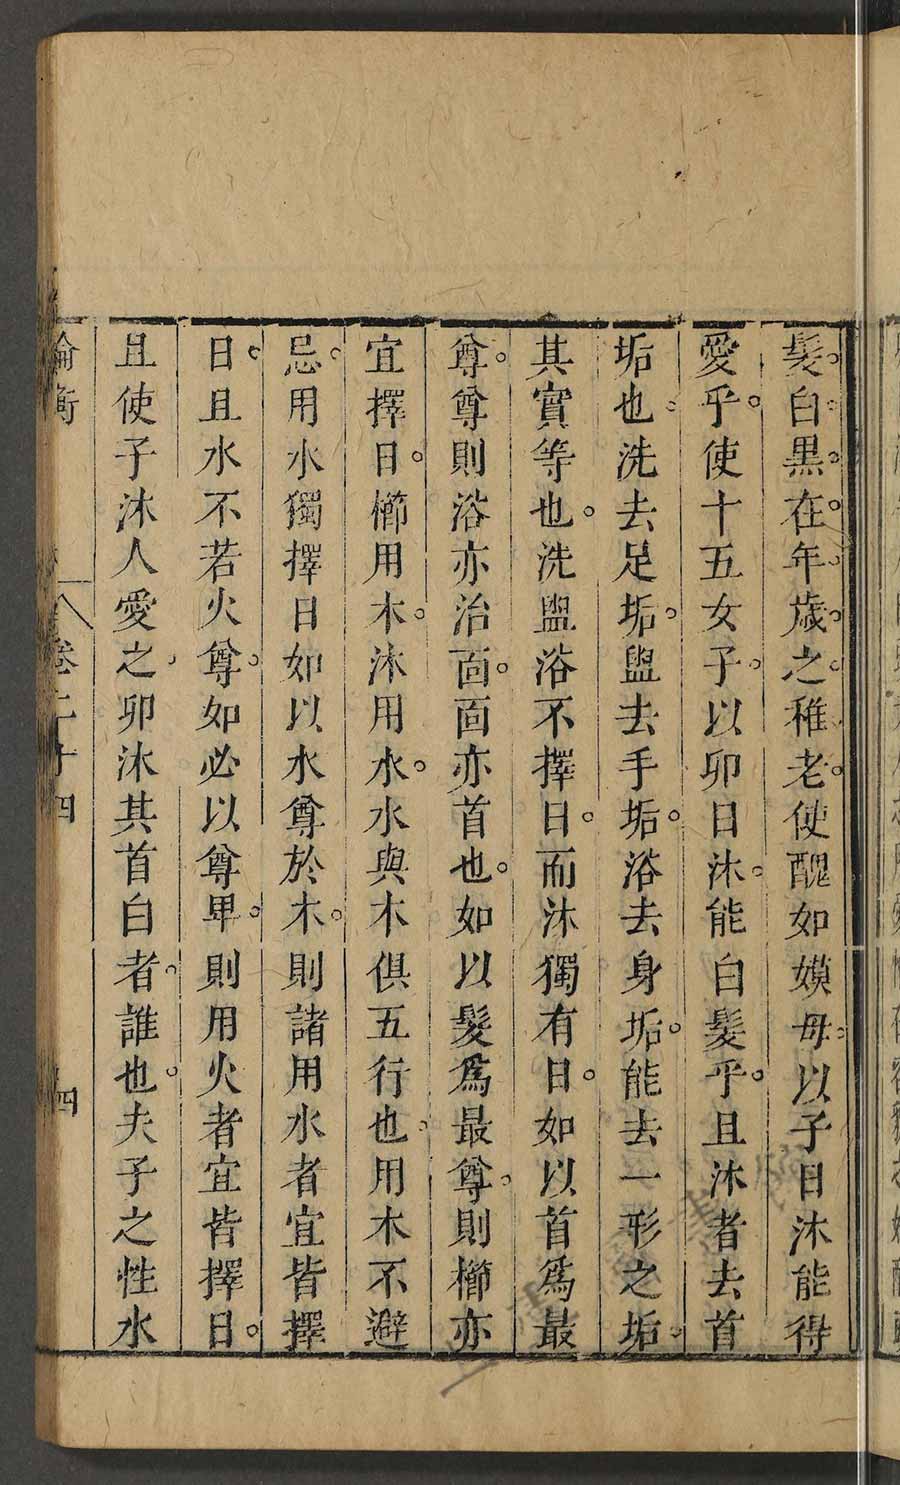 髮白黑在年歲之稚老使醜如嫫毋以子日沐能得
愛乎使十五女子以卯日沐能白髮乎且沐者去首
垢也洗去足垢盥去手垢浴去身垢能去一形之垢
其實等也洗盥浴不擇日而沐獨有日如以首爲最
尊尊則浴亦治面面亦首也如以髮爲最尊則櫛亦
宜擇日櫛用木沐用水水與木俱五行也用木不避
忌用水獨擇日如以水尊於木則諸用水者宜皆擇
日且水不若火尊如必以尊卑則用火者宜皆擇日
且使子沐人愛之卯沐其首白者誰也夫子之性水
論衡
卷二十四
四